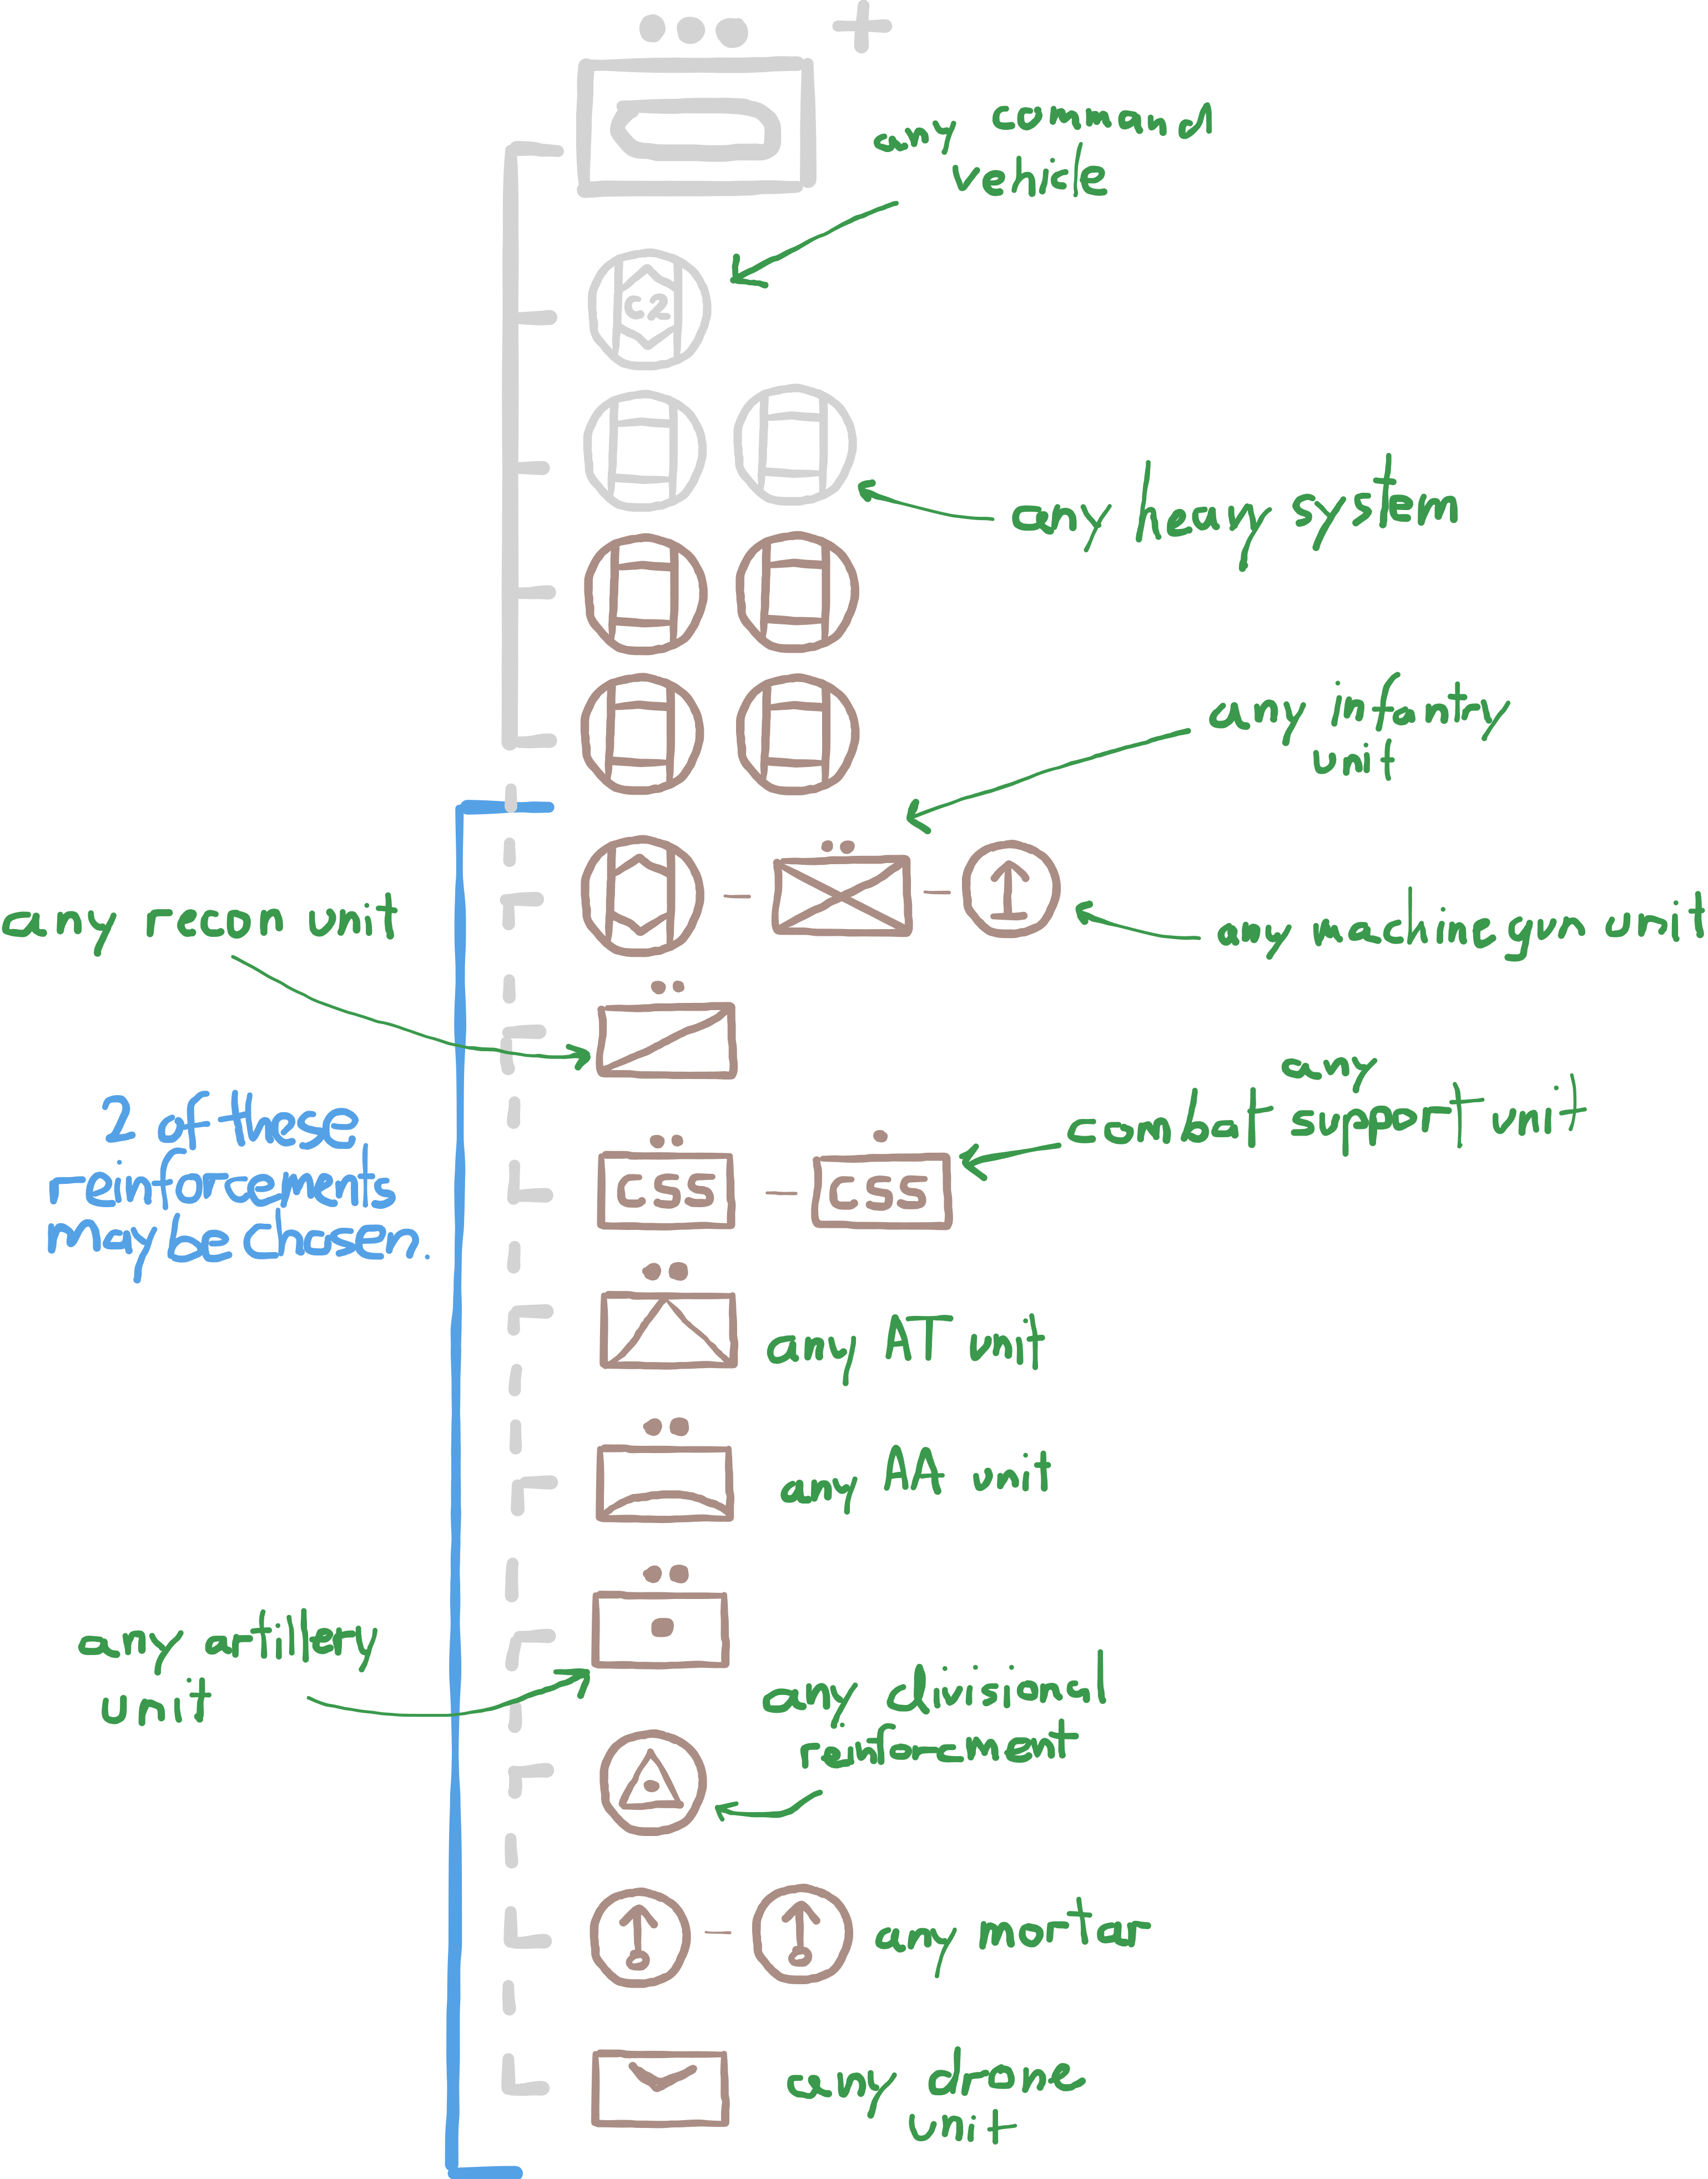 +
any command
vehicle
C2
any heavy system
any infantry
unit
any recon unit
any machinegun unit
2 of these
reinforcements
may be chosen.
any
combat support unit
CSS
CSS
any AT unit
any AA unit
any artillery
unit
any divisional
reinforcement
any mortar
any drone
unit